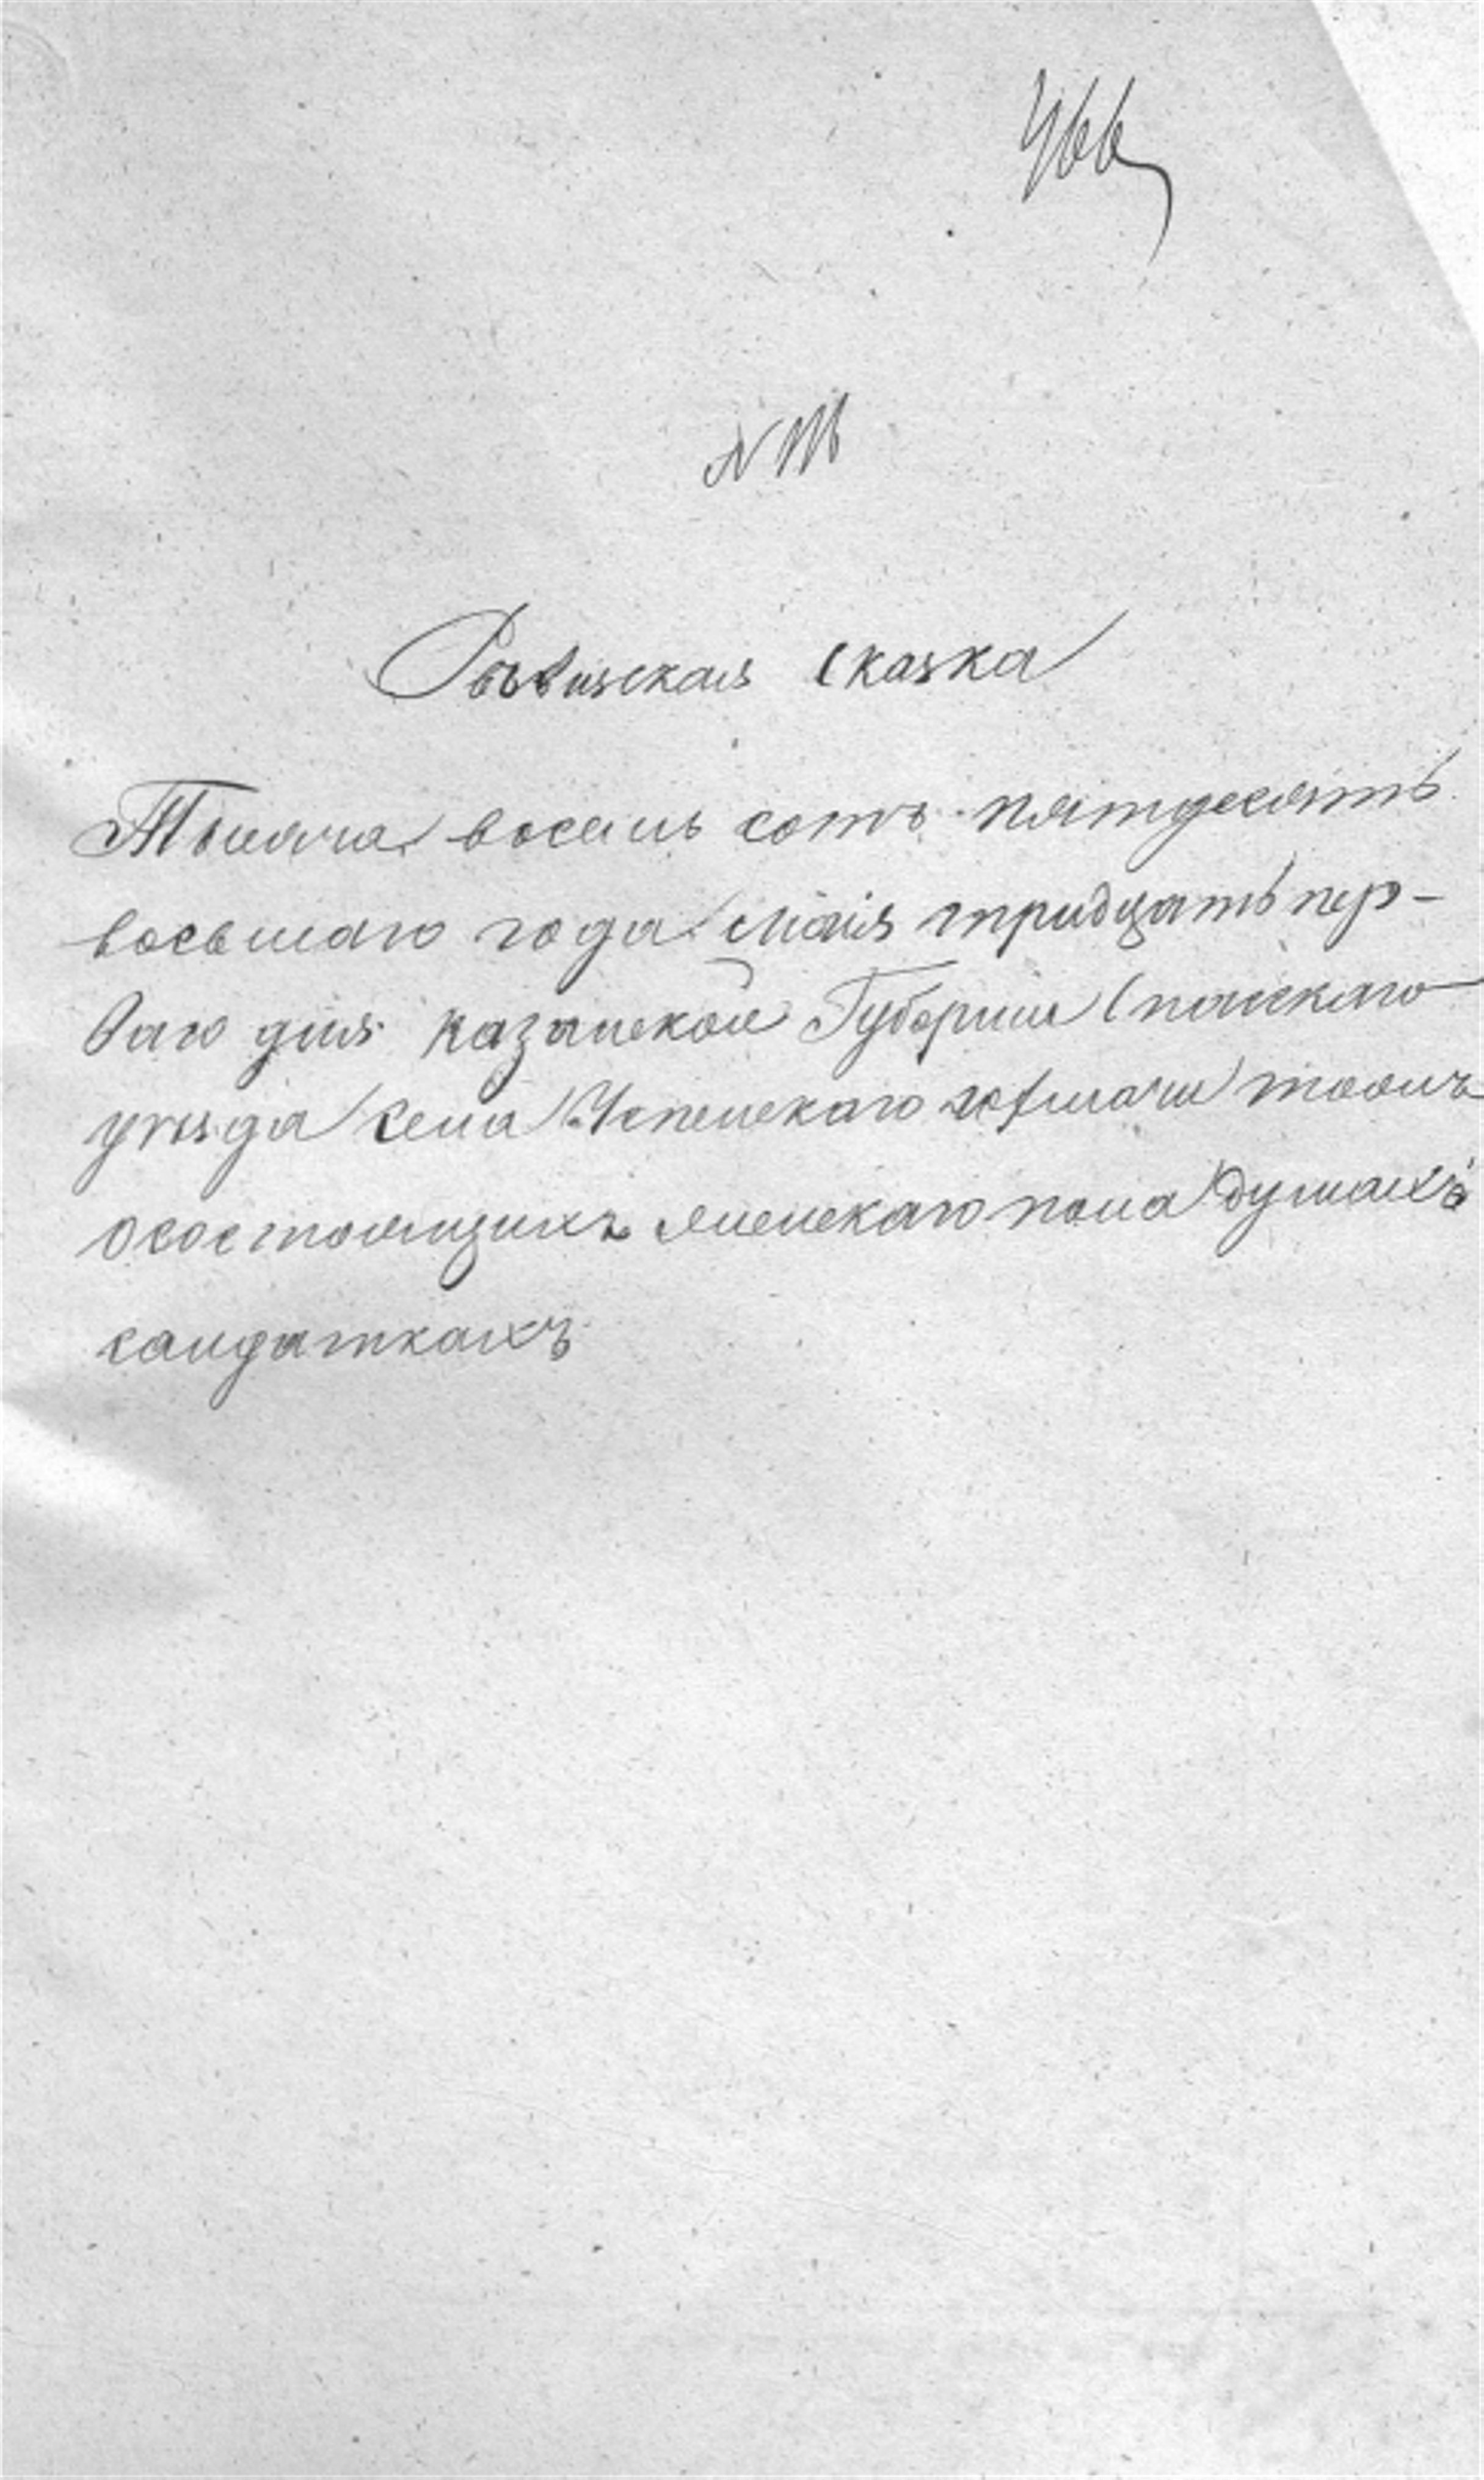 466
Ревизская Сказка
Тысяча восемь сотъ пятдесятъ
восьмаго года Маія тридцать пер-
ваго дня Казанской Губерніи Спаскаго
уѣзда села Успенскаго тожъ
осостоящихъ женскаго пола душахъ
салдаткахъ